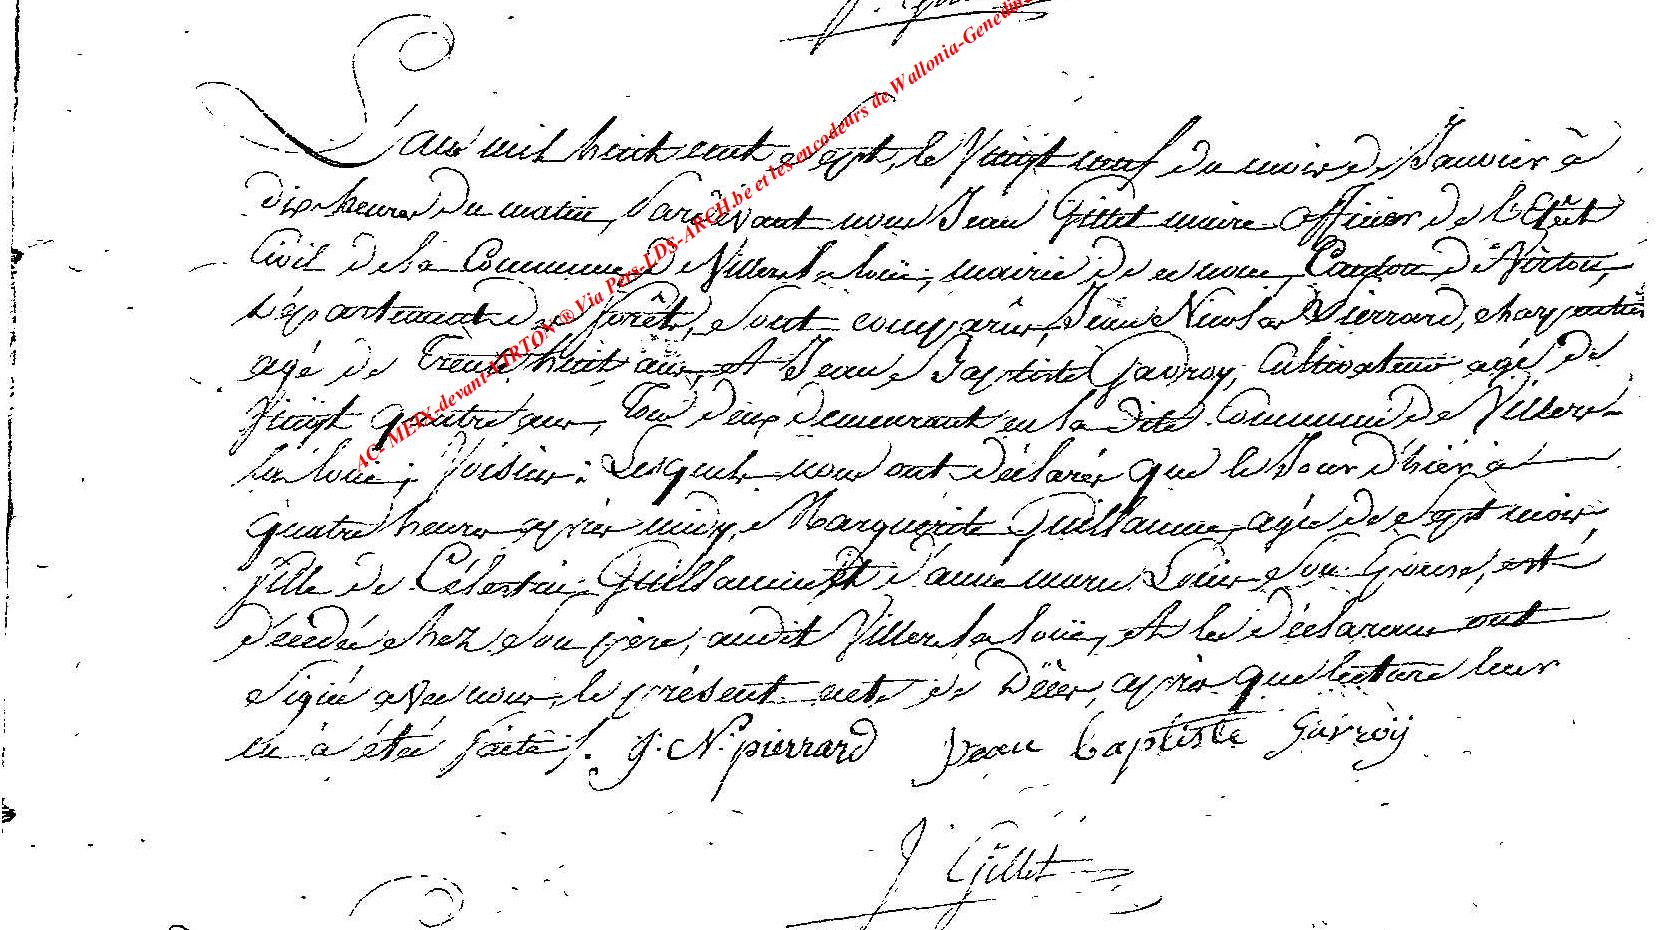 L'an mil huit cent sept, le Vingt neuf du mois de Janvier à
dix heures du matin, Pardevant nous Jean Gillet maire officier de l'Etat
Civil de la Commune de Villers la loüe, mairie de ce nom, Canton de Virton,
Département des forêts, sont comparûs, Jean Nicolas Pierrard, charpentier
agé de Trente huit ans, et Jean Baptiste Gavroy, Cultivateur agé de
Vingt quatre ans, Tous deux demeurant en la dite Commune de Villers-
la loüe, Voisins: Lesquels nous ont déclarés que le Jour d'hièr à
quatre heures après midy, Marguerite Guillaume, agée de sept mois,
fille de Célestin Guillaume et d'anne marie Louis son Epouse, est
décédée chez son père, audit Villers la loüe, et les déclarans ont
signé avec nous le présent acte de Décès, après que lecture leur
en à étée faite. J. N. pierrard Jean baptiste Gavroÿ
J Gillet
AC-MEIX-devant-VIRTON® Via Pers-LDS-ARCH.be et les encodeurs de Wallonia-Genedin